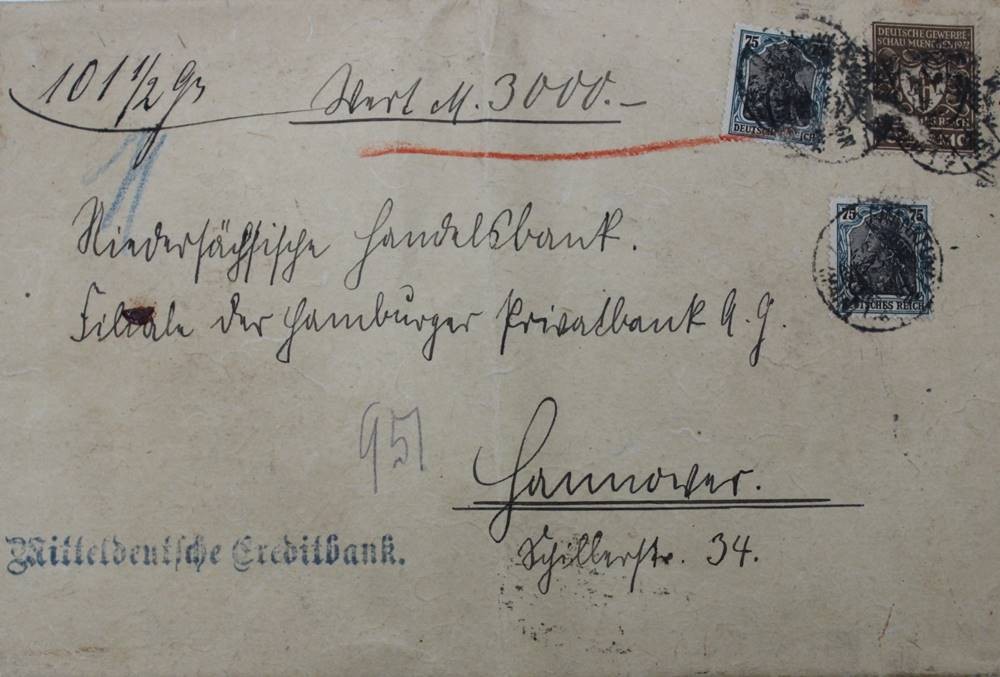 101 1/2 gr
Wert M. 3000.-
75
DEUTSCHES REICH
DEUTSCHE GEWERBE-
SCHAU MUENCHEN 1922
10
Niedersächsische Handelsbank.
75 75
DEUTSCHES REICH
Filiale der Hamburger Privatbank A.G.
951
Hannover.
Mitteldeutsche Creditbank.
Schillerstr. 34.